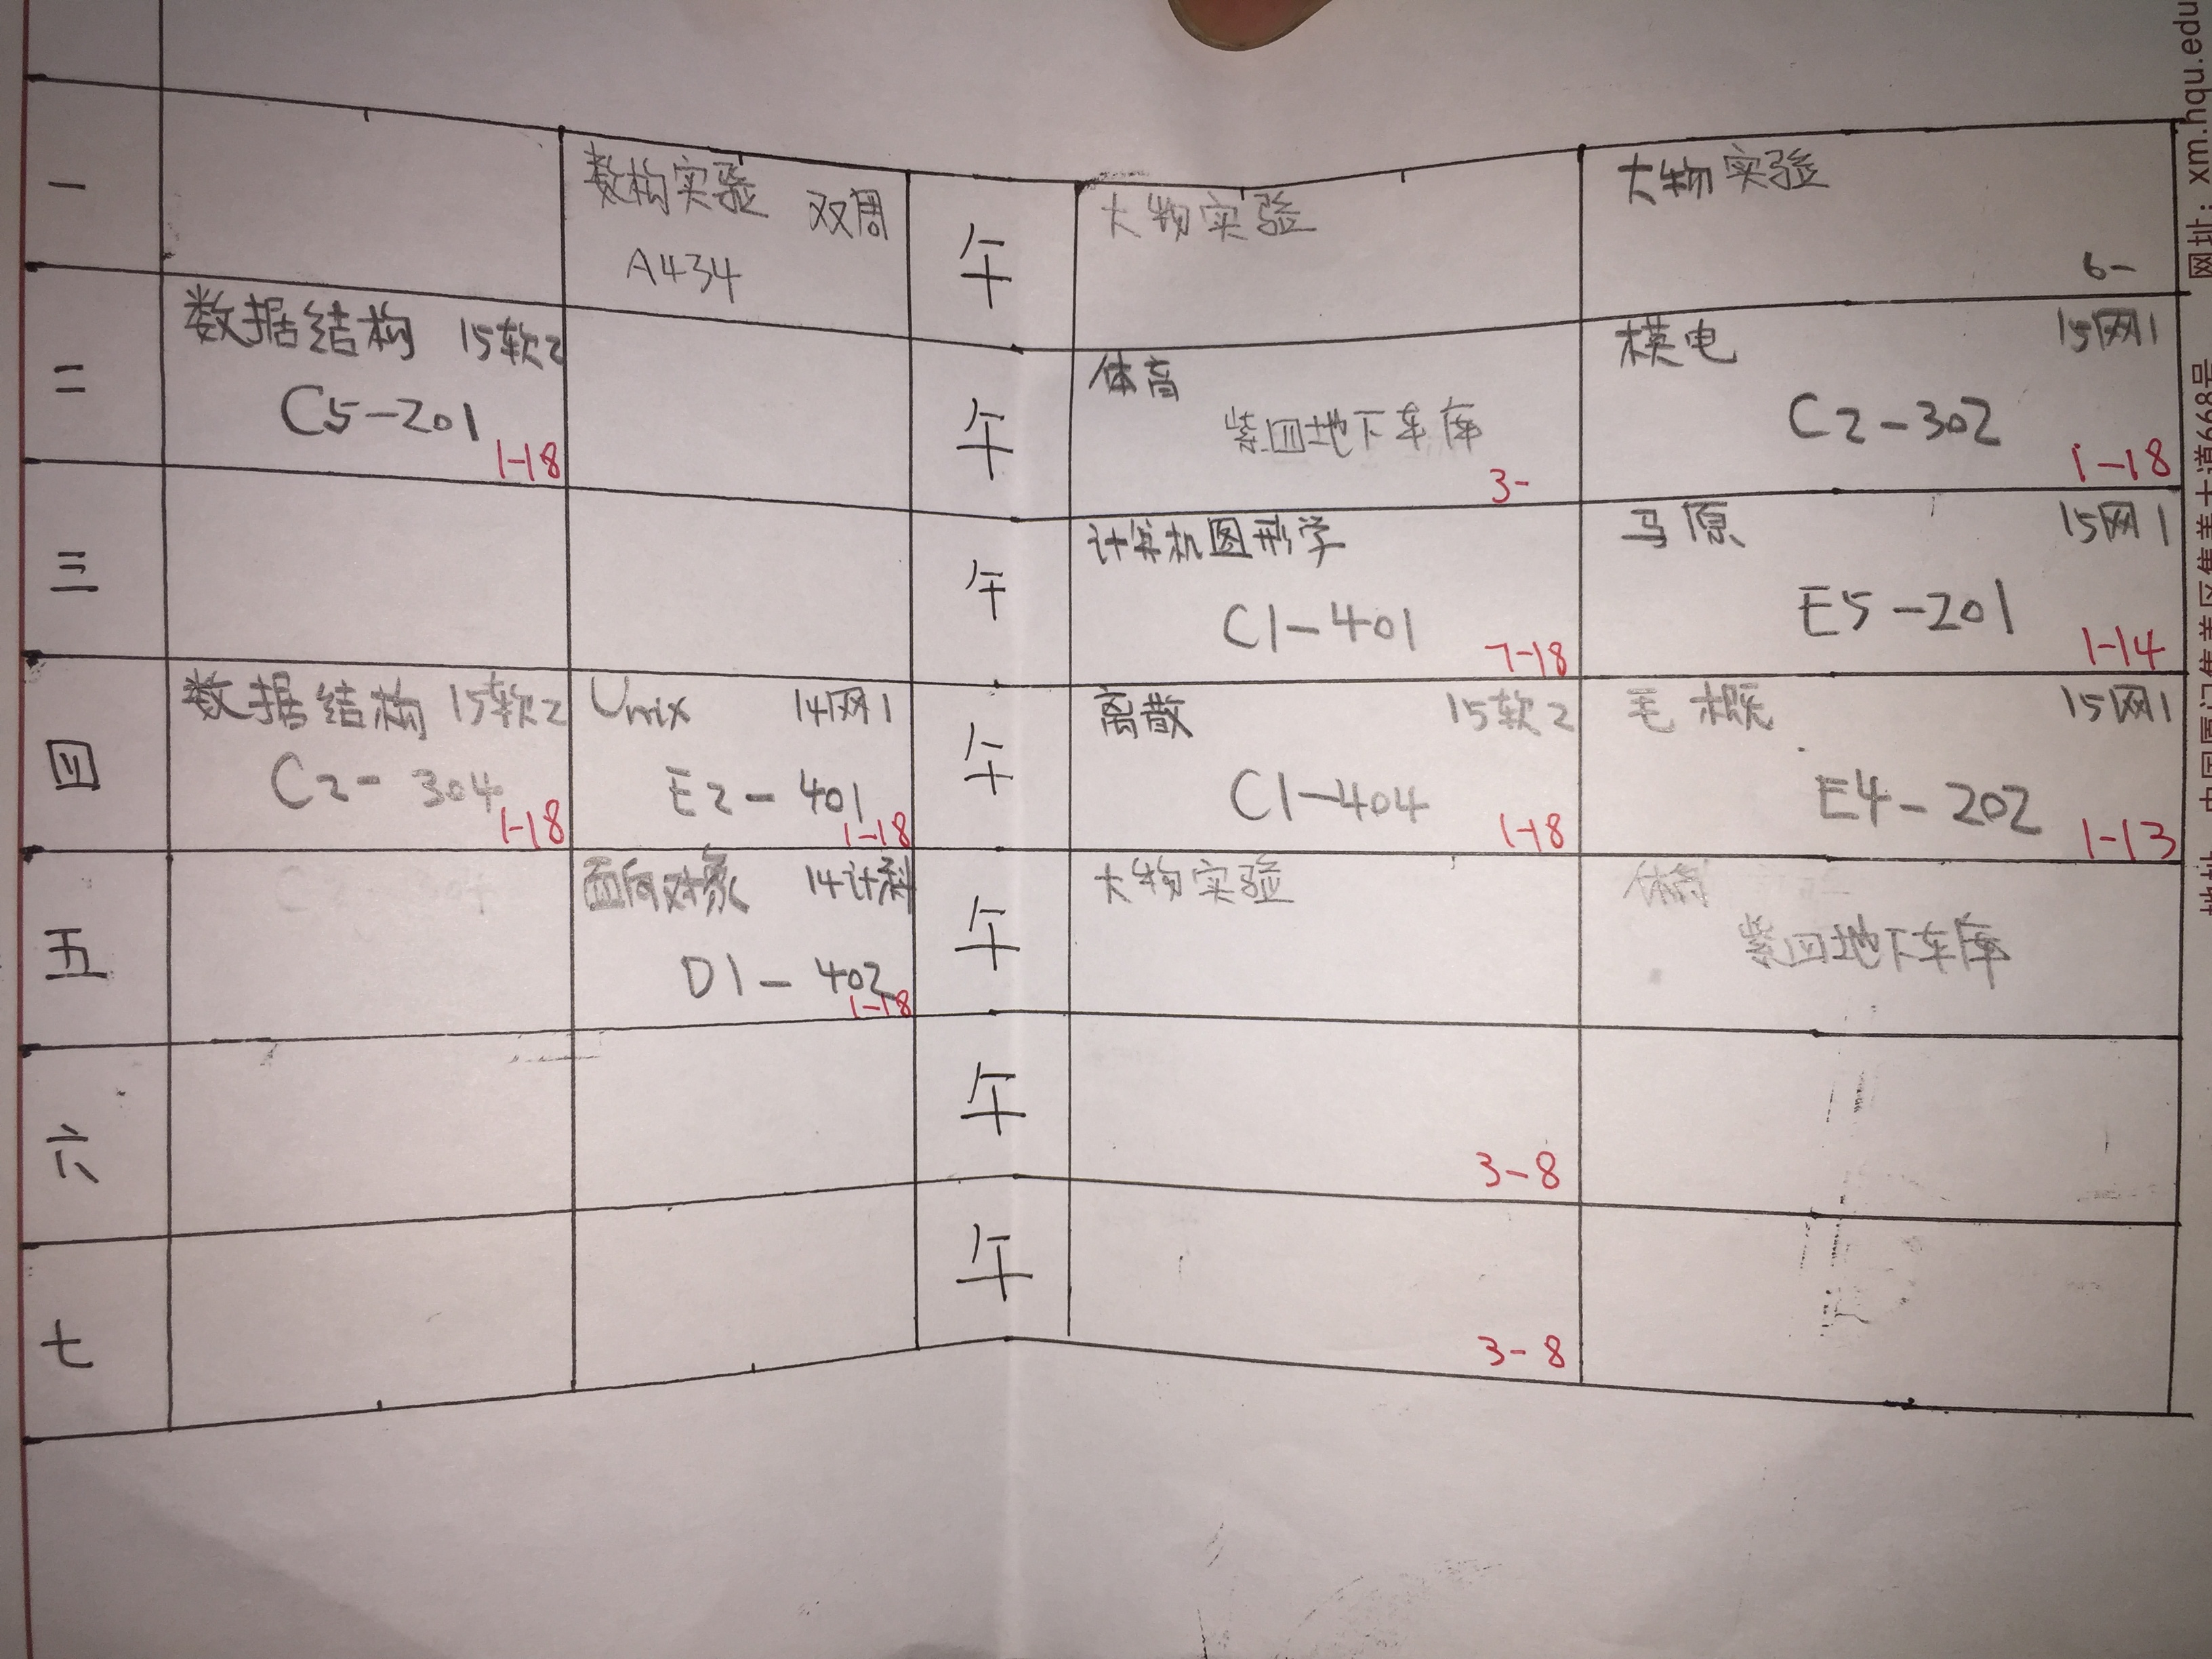 一
数构实验 双周
A434
午
大物实验
大物实验
6-
二
数据结构 15软2
C5-201
1-18
午
体育
紫四地下车库
3-
模电 15网1
C2-302
1-18
三
午
计算机图形学
C1-401
7-18
马原 15网1
E5-201
1-14
四
数据结构 15软2
C2-304
1-18
Unix 14网1
E2-401
1-18
午
离散 15软2
C1-404
1-18
毛概 15网1
E4-202
1-13
五
面向对象 14计科
D1-402
1-18
午
大物实验
体育
紫四地下车库
六
午
3-8
七
午
3-8
网址：xm.hqu.edu